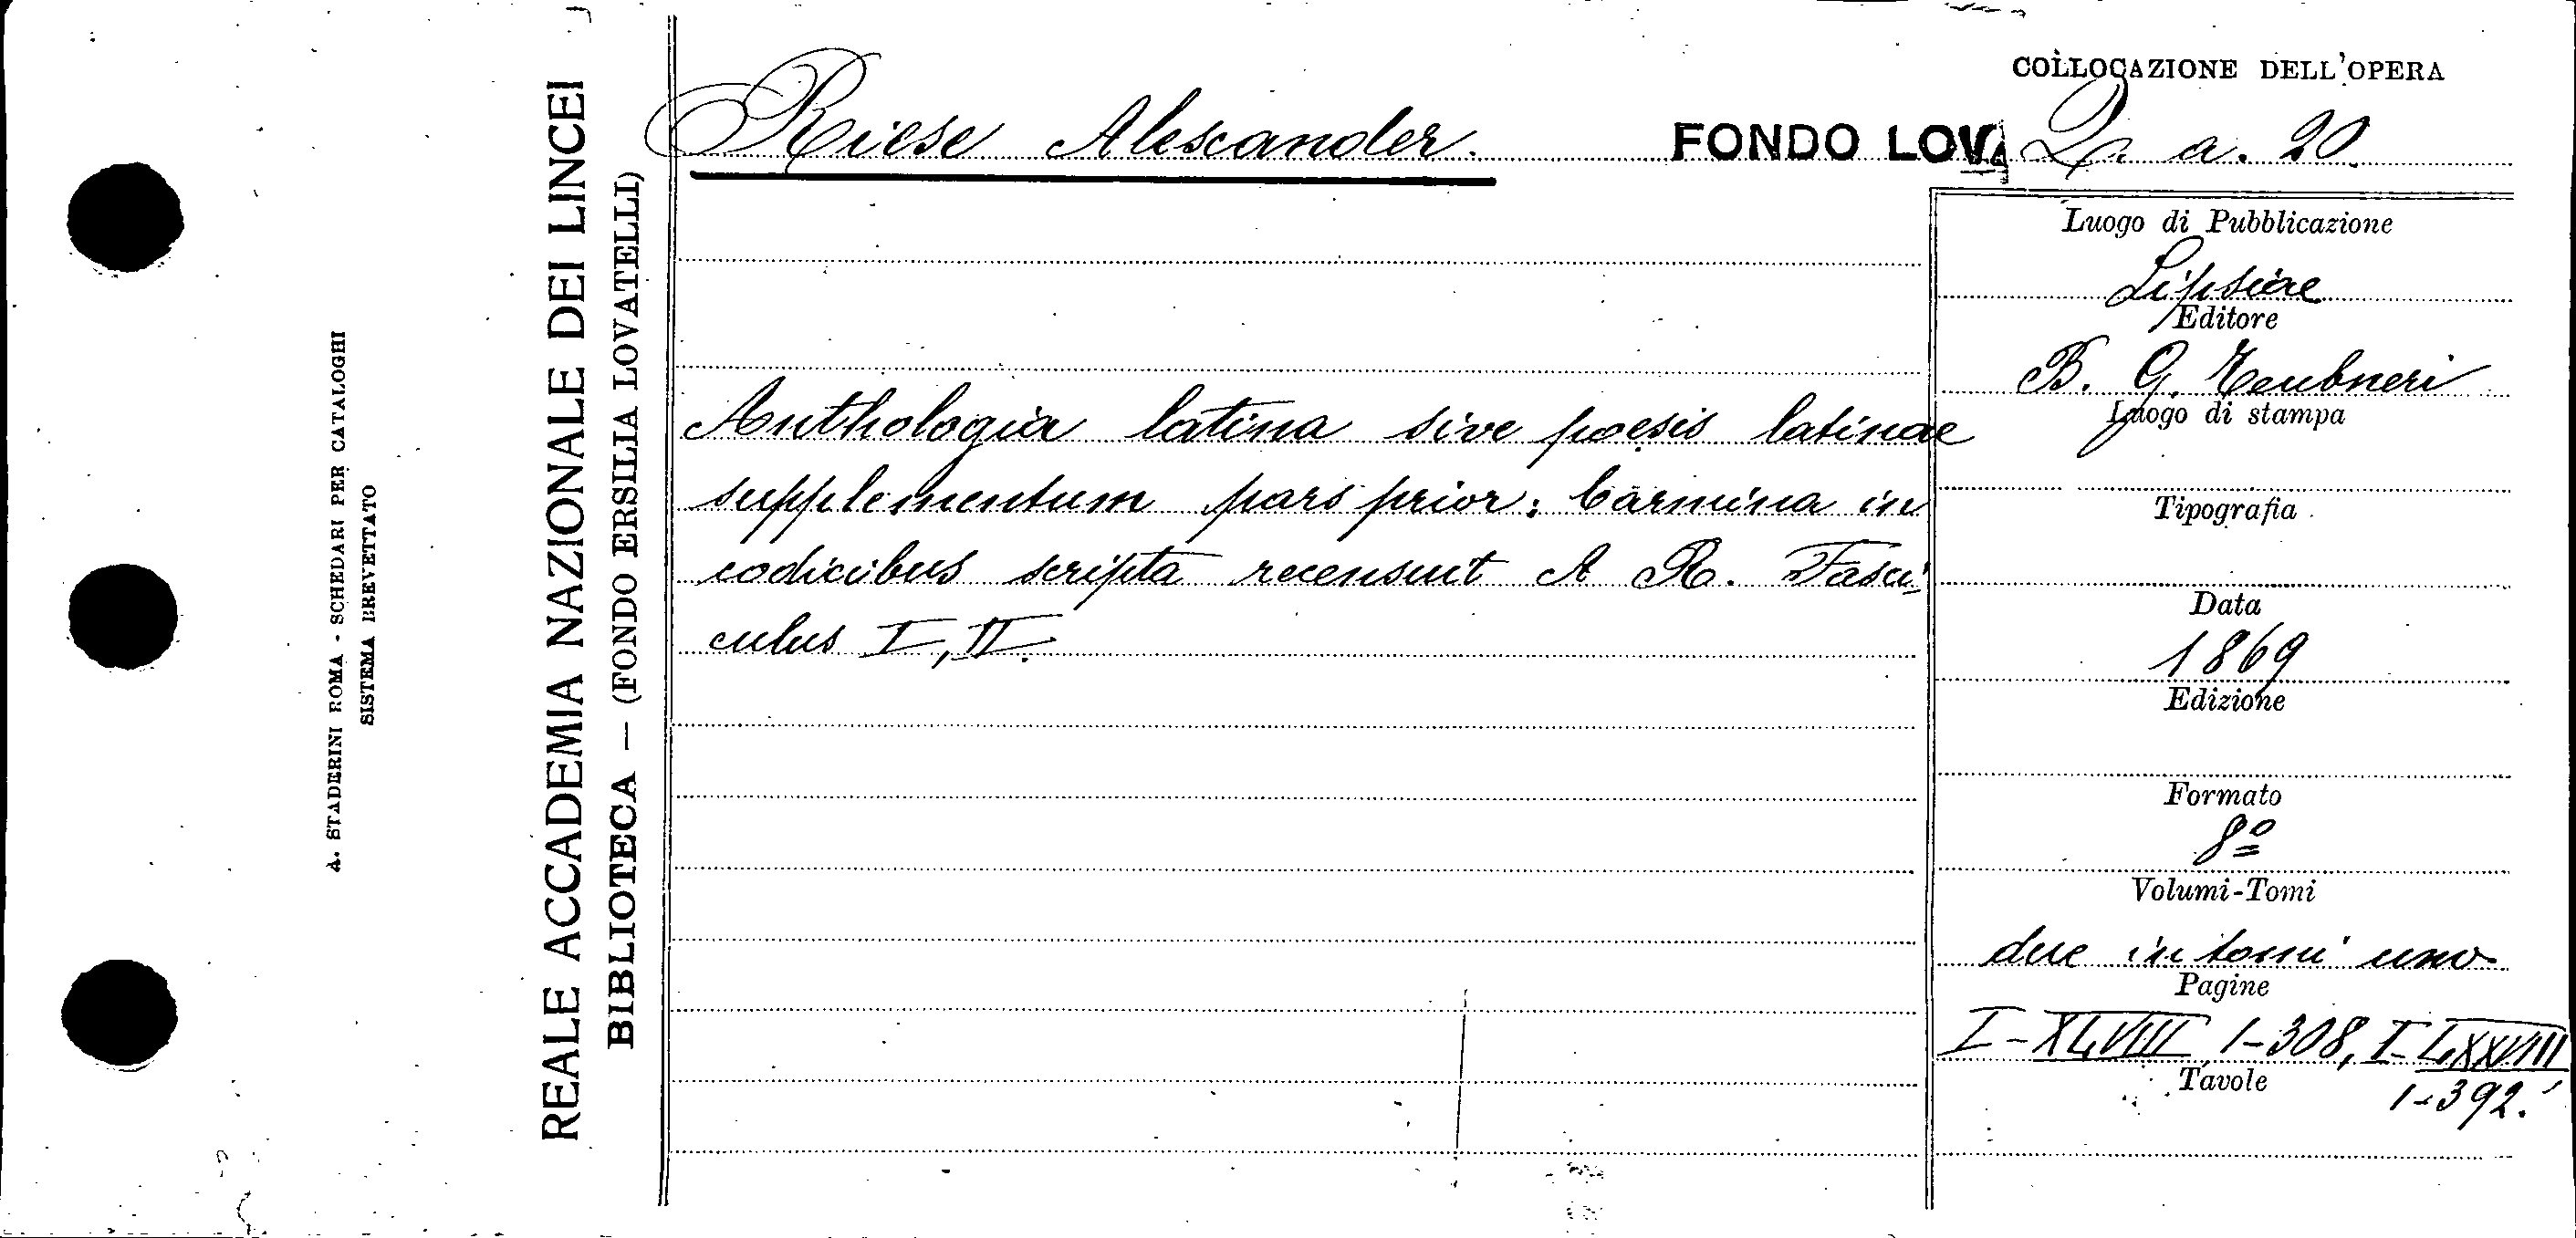 A. STADERINI ROMA - SCHEDARI PER CATALOGHI
SISTEMA BREVETTATO
REALE ACCADEMIA NAZIONALE DEI LINCEI
BIBLIOTECA — (FONDO ERSILIA LOVATELLI)
Riese Alexander.
FONDO LOV.
COLLOCAZIONE DELL'OPERA
a. 20.
Anthologia latina sive poesis latinae
supplementum pars prior: Carmina in
codicibus scripta recensuit A R. Fasci
culus I, II.
Luogo di Pubblicazione
Lipsiae
Editore
B. G. Teubneri
Luogo di stampa
Tipografia
Data
1869
Edizione
Formato
8º
Volumi-Tomi
due in tomi uno
Pagine
I-XLVIII, 1-308, I-LXXVIII
Tavole
1-392.